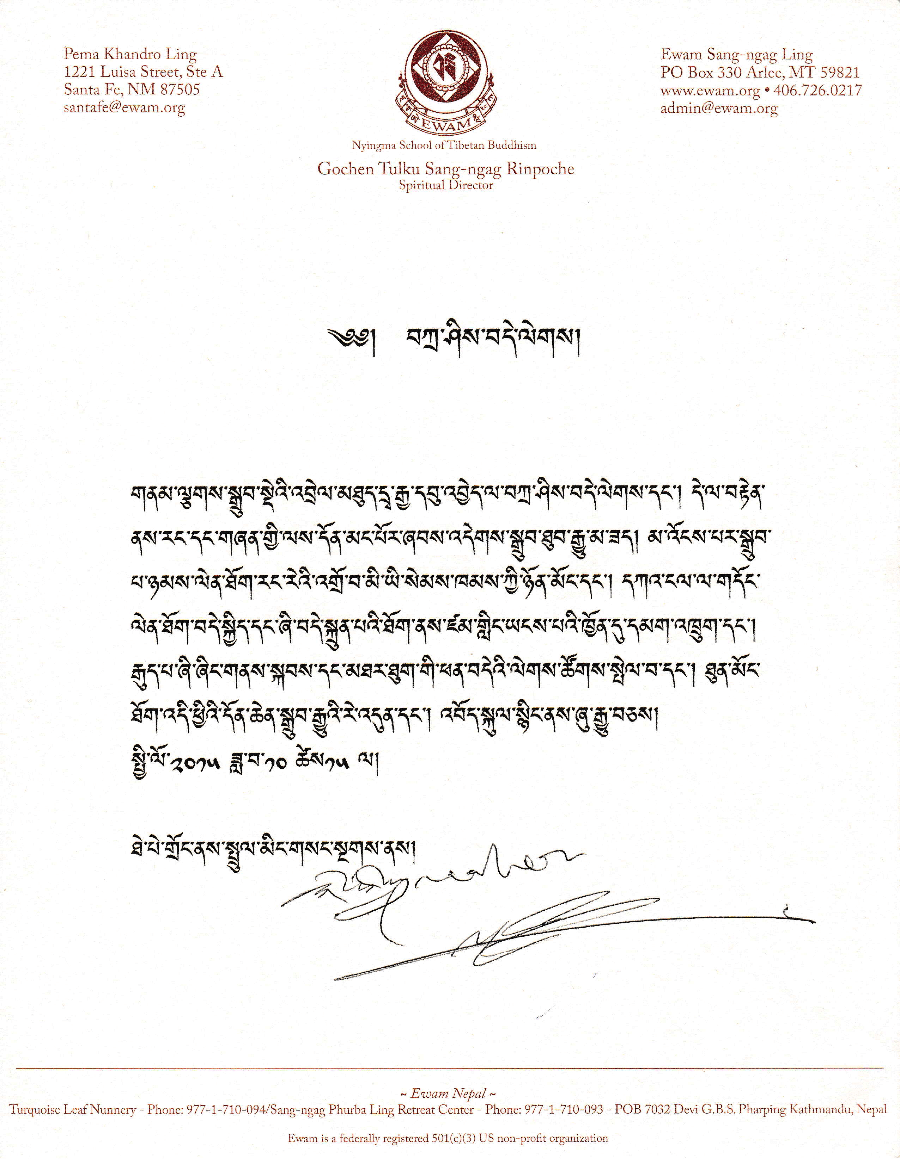 Pema Khandro Ling
1221 Luisa Street, Ste A
Santa Fe, NM 87505
santafe@ewam.org
EWAM
Nyingma School of Tibetan Buddhism
Gochen Tulku Sang-ngag Rinpoche
Spiritual Director
Ewam Sang-ngag Ling
PO Box 330 Arlee, MT 59821
www.ewam.org • 406.726.0217
admin@ewam.org
༄༅། བཀྲ་ཤིས་བདེ་ལེགས།
གནམ་ལྕགས་སྒྲུབ་སྡེའི་འབྲེལ་མཐུད་དྲྭ་རྒྱ་དབུ་འབྱེད་ལ་བཀྲ་ཤིས་བདེ་ལེགས་དང་། དེ་ལ་བརྟེན་
ནས་རང་དང་གཞན་གྱི་ལས་དོན་མང་པོར་ཞབས་འདེགས་སྒྲུབ་ཐུབ་རྒྱུ་མ་ཟད། མ་འོངས་པར་སྒྲུབ་
པ་ཉམས་ལེན་ཐོག་རང་རེའི་འགྲོ་བ་མི་ཡི་སེམས་ཁམས་ཀྱི་ཉོན་མོང་དང་། དཀའ་ངལ་ལ་གདོང་
ལེན་ཐོག་བདེ་སྐྱིད་དང་ཞི་བདེ་སྐྲུན་པའི་ཐོག་ནས་ཛམ་གླིང་ཡངས་པའི་ཁྱོན་དུ་དམག་འཁྲུག་དང་།
རྒུད་པ་ཞི་ཞིང་གནས་སྐབས་དང་མཐར་ཐུག་གི་ཕན་བདེའི་ལེགས་ཚོགས་སྤེལ་བ་དང་། ཐུན་མོང་
ཐོག་འདི་ཕྱིའི་དོན་ཆེན་སྒྲུབ་རྒྱུའི་རེ་འདུན་དང་། འབོད་སྐུལ་སྙིང་ནས་ཞུ་རྒྱུ་བཅས།
སྤྱི་ལོ་༢༠༡༥ ཟླ་བ་༡༠ ཚེས༡༥ ལ།
ཐེ་པེ་གྲོང་ནས་སྤྲུལ་མིང་གསང་སྔགས་ནས།
~ Ewam Nepal ~
Turquoise Leaf Nunnery - Phone: 977-1-710-094/Sang-ngag Phurba Ling Retreat Center - Phone: 977-1-710-093 - POB 7032 Devi G.B.S. Pharping Kathmandu, Nepal
Ewam is a federally registered 501(c)(3) US non-profit organization